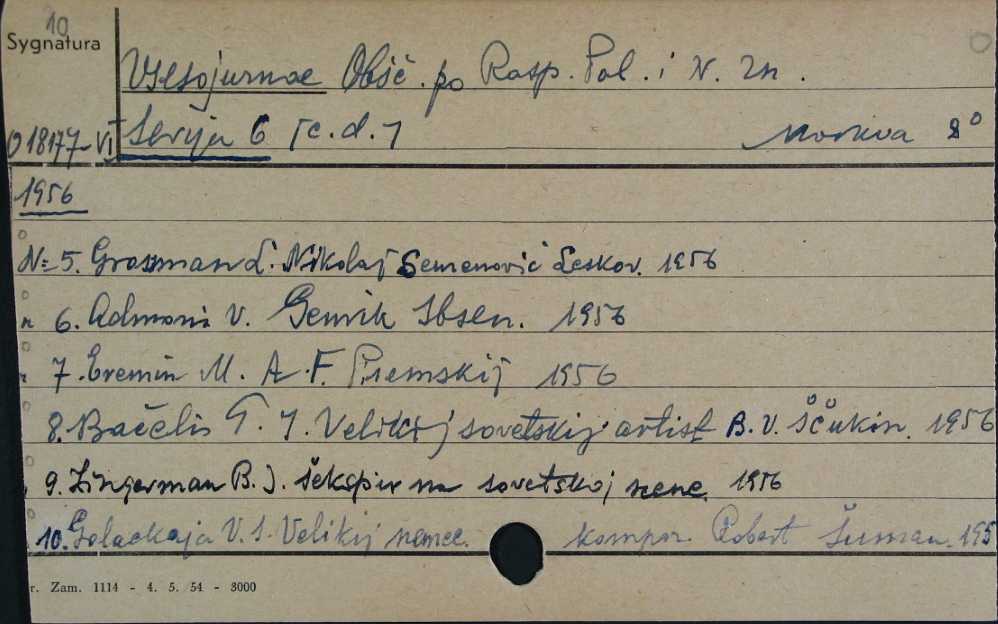 10
Sygnatura
Vsesojuznoe Obšč. po Rasp. Pol. i N. Zn.
O 18177-VI Serija 6 [c.d.] Moskva 8°
1956
№ 5. Grossman L. Nikolaj Semenovič Leskov. 1956
" 6. Admoni V. Genrik Ibsen. 1956
" 7. Eremin M. A. F. Pisemskij 1956
" 8. Bačelis T. I. Velikij sovetskij artist B. V. Ščukin. 1956
" 9. Zingerman B. I. Šekspir na sovetskoj scene. 1956
" 10. V. S. Velikij nemec. kompoz. Robert Šuman. 195
r. Zam. 1114 - 4. 5. 54 - 3000